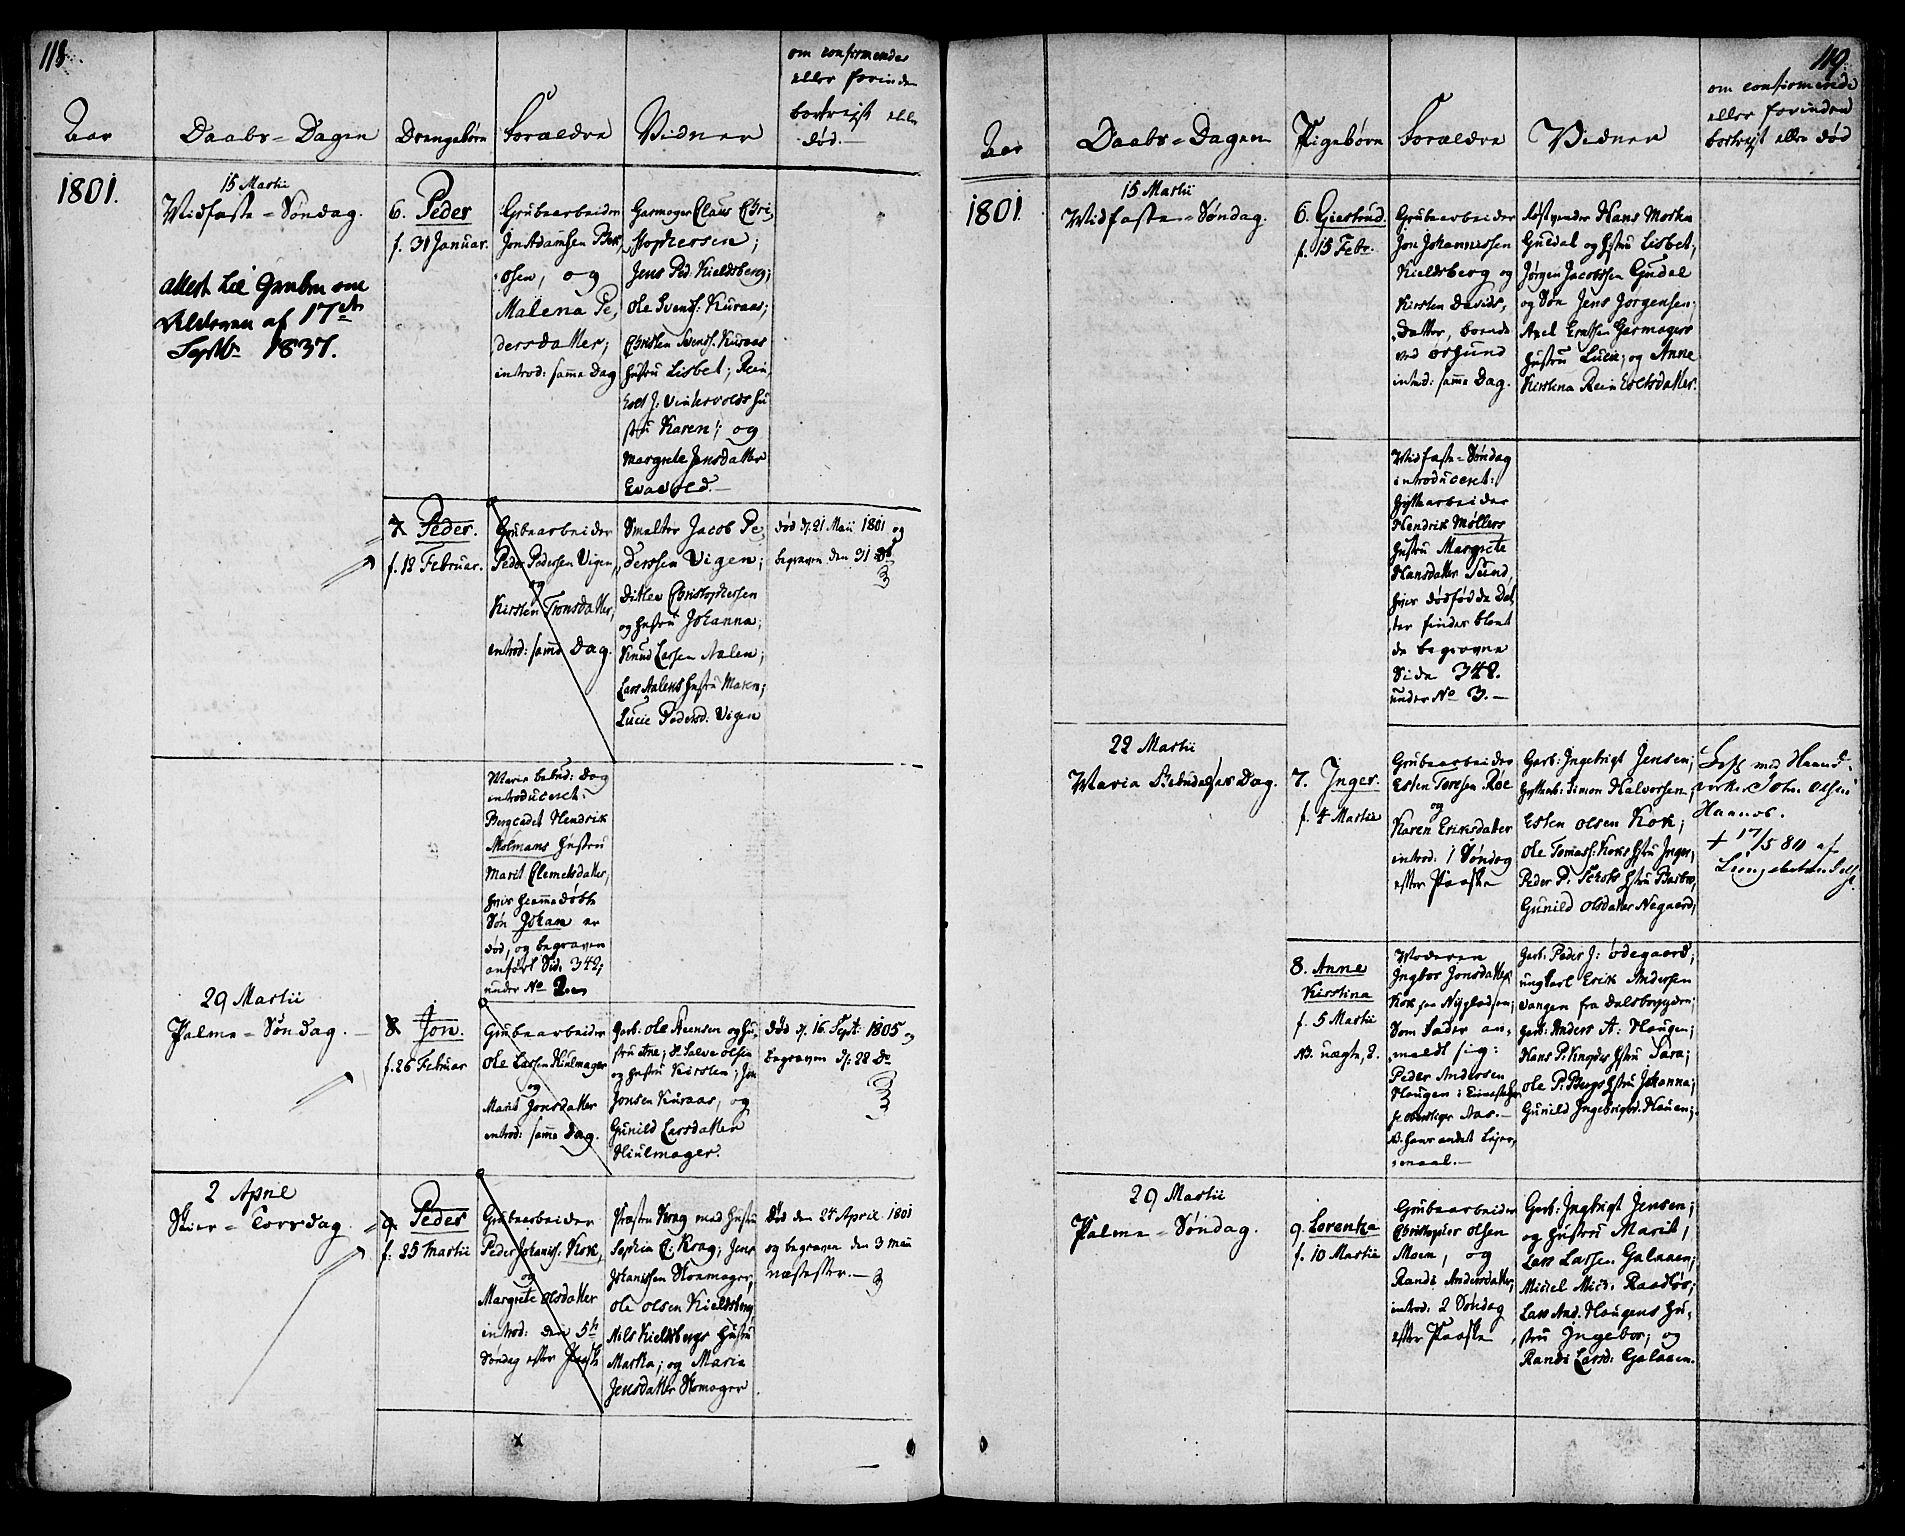 118.
Aar
Daabs-Dagen
Drengebørn
Forældre
Vidner
om confirmeret
eller forinden
bortreist eller
død.
1801.
15 Martii
Midfaste-Søndag.
Attest
af 17de
Septbr 1837.
6. Peder
f. 31 Januar.
Grubearbeider
Jon Adamsen
og
Malena Pe-
dersdatter;
introd: samme Dag
Garmager Claus Chri-
stophersen;
Jens Ped. Kieldsberg;
Ole Svends: Kuraas;
Christen Svends. Kuraas
hustru Lisbet; Rein-
holt J: Vintervolds hu-
stru Karen; og
Margrete Jensdatter
Evavold.
7 Peder.
f. 18 Februar.
Grubearbeider
Peder Pedersen Vigen,
og
Kirsten Tronsdatter,
introd: samme Dag.
Smelter Jacob Pe-
derssen Vigen;
Ditlev Christophersen
og hustru Johanna;
Knud Larsen Aalen;
Lars Aalens hustru Maren;
Lucie Pedersd. Vigen
død d. 21 Maii 1801 og
begraven den 31 do
Mariæ bebud: Dag
introduceret:
Bergcadet Hendrik
Molmans hustru
Marit Clemetsdatter,
hvis hiemmedøbte
Søn Johan er
død, og begraven
anført Sid. 342,
under No 2.
29 Martii
Palme-Søndag.
8 Jon.
f. 26 Februar
Grubearbeider
Ole Larsen Hiulmager
og
Marit Jonsdatter
introd: samme Dag.
Garb: Ole Steensen og hu-
stru Ane; Salve Olsen
og hustru Kirsten; Jon
Jonsen Kuraas, og
Gunild Larsdatter
Hiulmager.
død d. 16 Sept: 1805 og
begraven d: 28 do
2 April
Skier-Torsdag.
9. Peder
f. 25 Martii
Grubearbeider
Peder Johaniss. Kok,
og
Margrete Olsdatter
introd: den 5te
Søndag efter Paaske
Præsten Krag med hustru
Sophia C: Krag; Jens
Johanissen Skomager,
Ole Olsen Kieldsberg,
Nils Kieldsbergs hustru
Martha; og Maria
Jensdatter Skomager.
død den 24 April 1801
og begraven den 3 Maii
næstefter.
119.
Aar
Daabs-Dagen
Pigebørn
Forældre
Vidner
om confirmerede
eller forinden
bortreist eller død
1801
15 Martii
Midfaste-Søndag.
6. Giertrud.
f. 15 Febr.
Grubearbeider
Jon Johannessen
Kieldsberg og
Kirsten Davids-
datter, boende
ved Orsund
introd: samme Dag.
Røstvender Hans Morten
Guldal og hstru Lisbet;
Jørgen Jacobssen Guldal
og Søn Jens Jørgensen;
Axel Erntsen Garmagers
hustru Lucie; og Anne
Kirstina Reinholtsdatter.
Midfaste-Søndag
introduceret:
Hyttearbeider
Hendrik Møllers
hustru Margrete
Hansdatter Sund,
hvis dødfødde Dat-
ter findes blant
de begravne
Side 342.
under No 3.
22 Martii
Maria Bebudelses Dag.
7. Inger.
f. 4 Martii
Grubearbeider
Esten Toresen Røe
og
Karen Eriksdatter
introd: 1 Søndag
efter Paaske
Garb: Ingebrigt Jensen;
Hyttearb: Simon Halvorsen;
Esten Olsen Kok;
Ole Tomass: Koks hstru Inger;
Peder P. hstru Barbro,
Gunild Olsdatter Nygaard,
Gift med Haand-
verker John Olsen
Haanes.
+ 17/5 80 af
8. Anne
Kirstina
f. 5 Martii
NB. uægte, 2.
Moderen
Ingbor Jonsdatter
Kok paa Nypladsen;
Som Fader an-
meldt sig:
Peder Andersen
Haugen i
Aas.
NB. hans andet Leier-
maal.
Garb: Peder J: Ødegaard;
ungkarl Erik Andersen
Vangen fra Dalsbygden;
Garb: Anders A: Haugen;
Hans P. Knophs hstru Sara;
Ole P: Bergs hstru Johanna;
Gunild Ingebrigtsd: Hauen;
29 Martii
Palme-Søndag.
9 Lorentza
f. 10 Martii
Grubearbeider
Christopher Olsen
Moen, og
Randi Andersdatter,
introd: 2 Søndag
efter Paaske
Garb: Ingbrigt Jensen;
og hustru Marit;
Lars Larsen Galaaen;
Michel Mich: Raadløs;
Lars And. Haugens hu-
stru Ingebor; og
Randi Larsd: Galaaen.